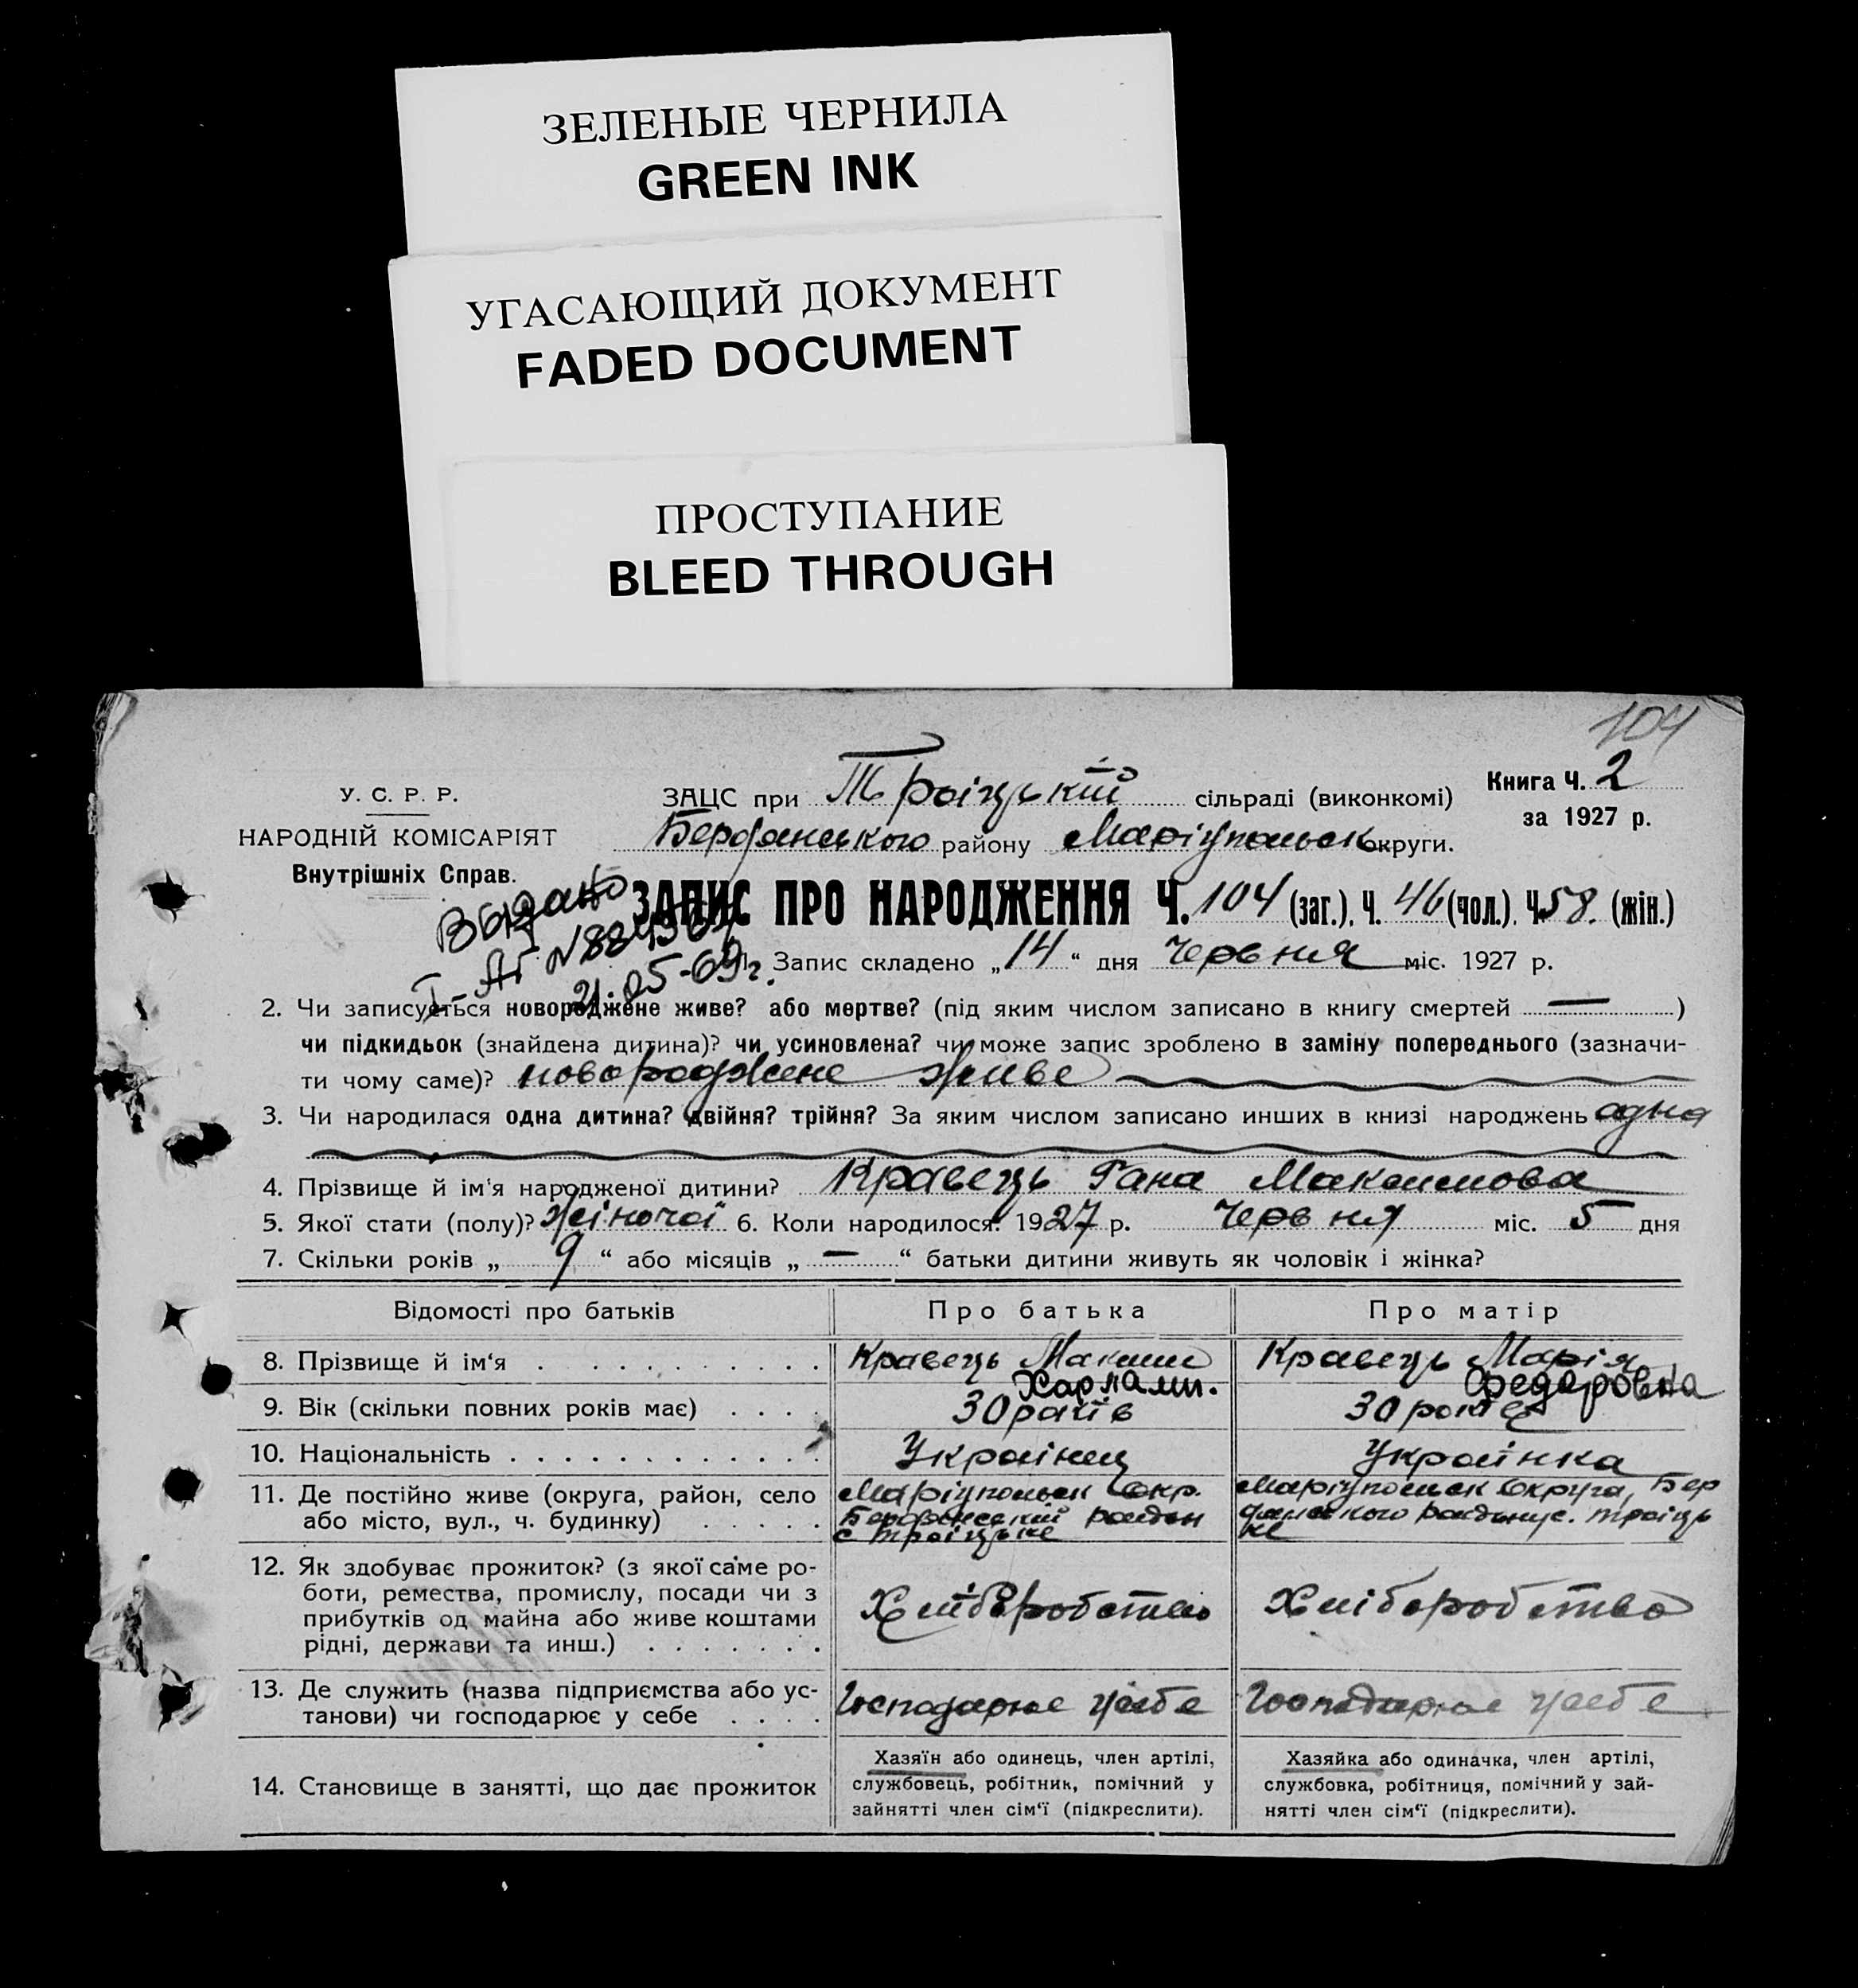 ЗЕЛЕНЫЕ ЧЕРНИЛА
GREEN INK
УГАСАЮЩИЙ ДОКУМЕНТ
FADED DOCUMENT
ПРОСТУПАНИЕ
BLEED THROUGH
104
У. С. Р. Р.
НАРОДНІЙ КОМІСАРІЯТ
Внутрішніх Справ.
ЗАЦС при Троіцькій сільраді (виконкомі)
Бердянського району Маріупольськ округи.
Книга Ч. 2
за 1927 р.
Выдано
I-АГ N
21.05-69г.
ЗАПИС ПРО НАРОДЖЕННЯ Ч. 104 (заг.), Ч. 46 (чол.), Ч. 58. (жін.)
Запис складено „14“ дня Червня міс. 1927 р.
2. Чи записується новороджене живе? або мертве? (під яким числом записано в книгу смертей — )
чи підкидьок (знайдена дитина)? чи усиновлена? чи може запис зроблено в заміну попереднього (зазначи-
ти чому саме)? новороджене живе
3. Чи народилася одна дитина? двійня? трійня? За яким числом записано инших в книзі народжень одна
4. Прізвище й ім'я народженої дитини? Кравець Гана Максимова
5. Якої стати (полу)? жіночої 6. Коли народилося: 1927 р. Червня міс. 5 дня
7. Скільки років „ 9 “ або місяців „ — “ батьки дитини живуть як чоловік і жінка?
Відомості про батьків Про батька Про матір
8. Прізвище й ім'я . . . . . . . . . . Кравець Максим Харлами. Кравець Марія Федоровна
9. Вік (скільки повних років має) . . . . 30 років 30 років
10. Національність . . . . . . . . . . . . . Українец Українка
11. Де постійно живе (округа, район, село
або місто, вул., ч. будинку) . . . . .
Маріупольськ Окр.
Бердянський район
с Троіцьке
Маріупольськ Округа, Бер
дянського району с. Троіць
ке
12. Як здобуває прожиток? (з якої саме ро-
боти, ремества, промислу, посади чи з
прибутків од майна або живе коштами
рідні, держави та инш.) . . . . . . .
Хліборобство
Хліборобство
13. Де служить (назва підприємства або ус-
танови) чи господарює у себе . . . .
Господарює у себе
Господарює у себе
14. Становище в занятті, що дає прожиток
Хазяїн або одинець, член артілі,
службовець, робітник, помічний у
зайнятті член сім'ї (підкреслити).
Хазяйка або одиначка, член артілі,
службовка, робітниця, помічний у зай-
нятті член сім'ї (підкреслити).